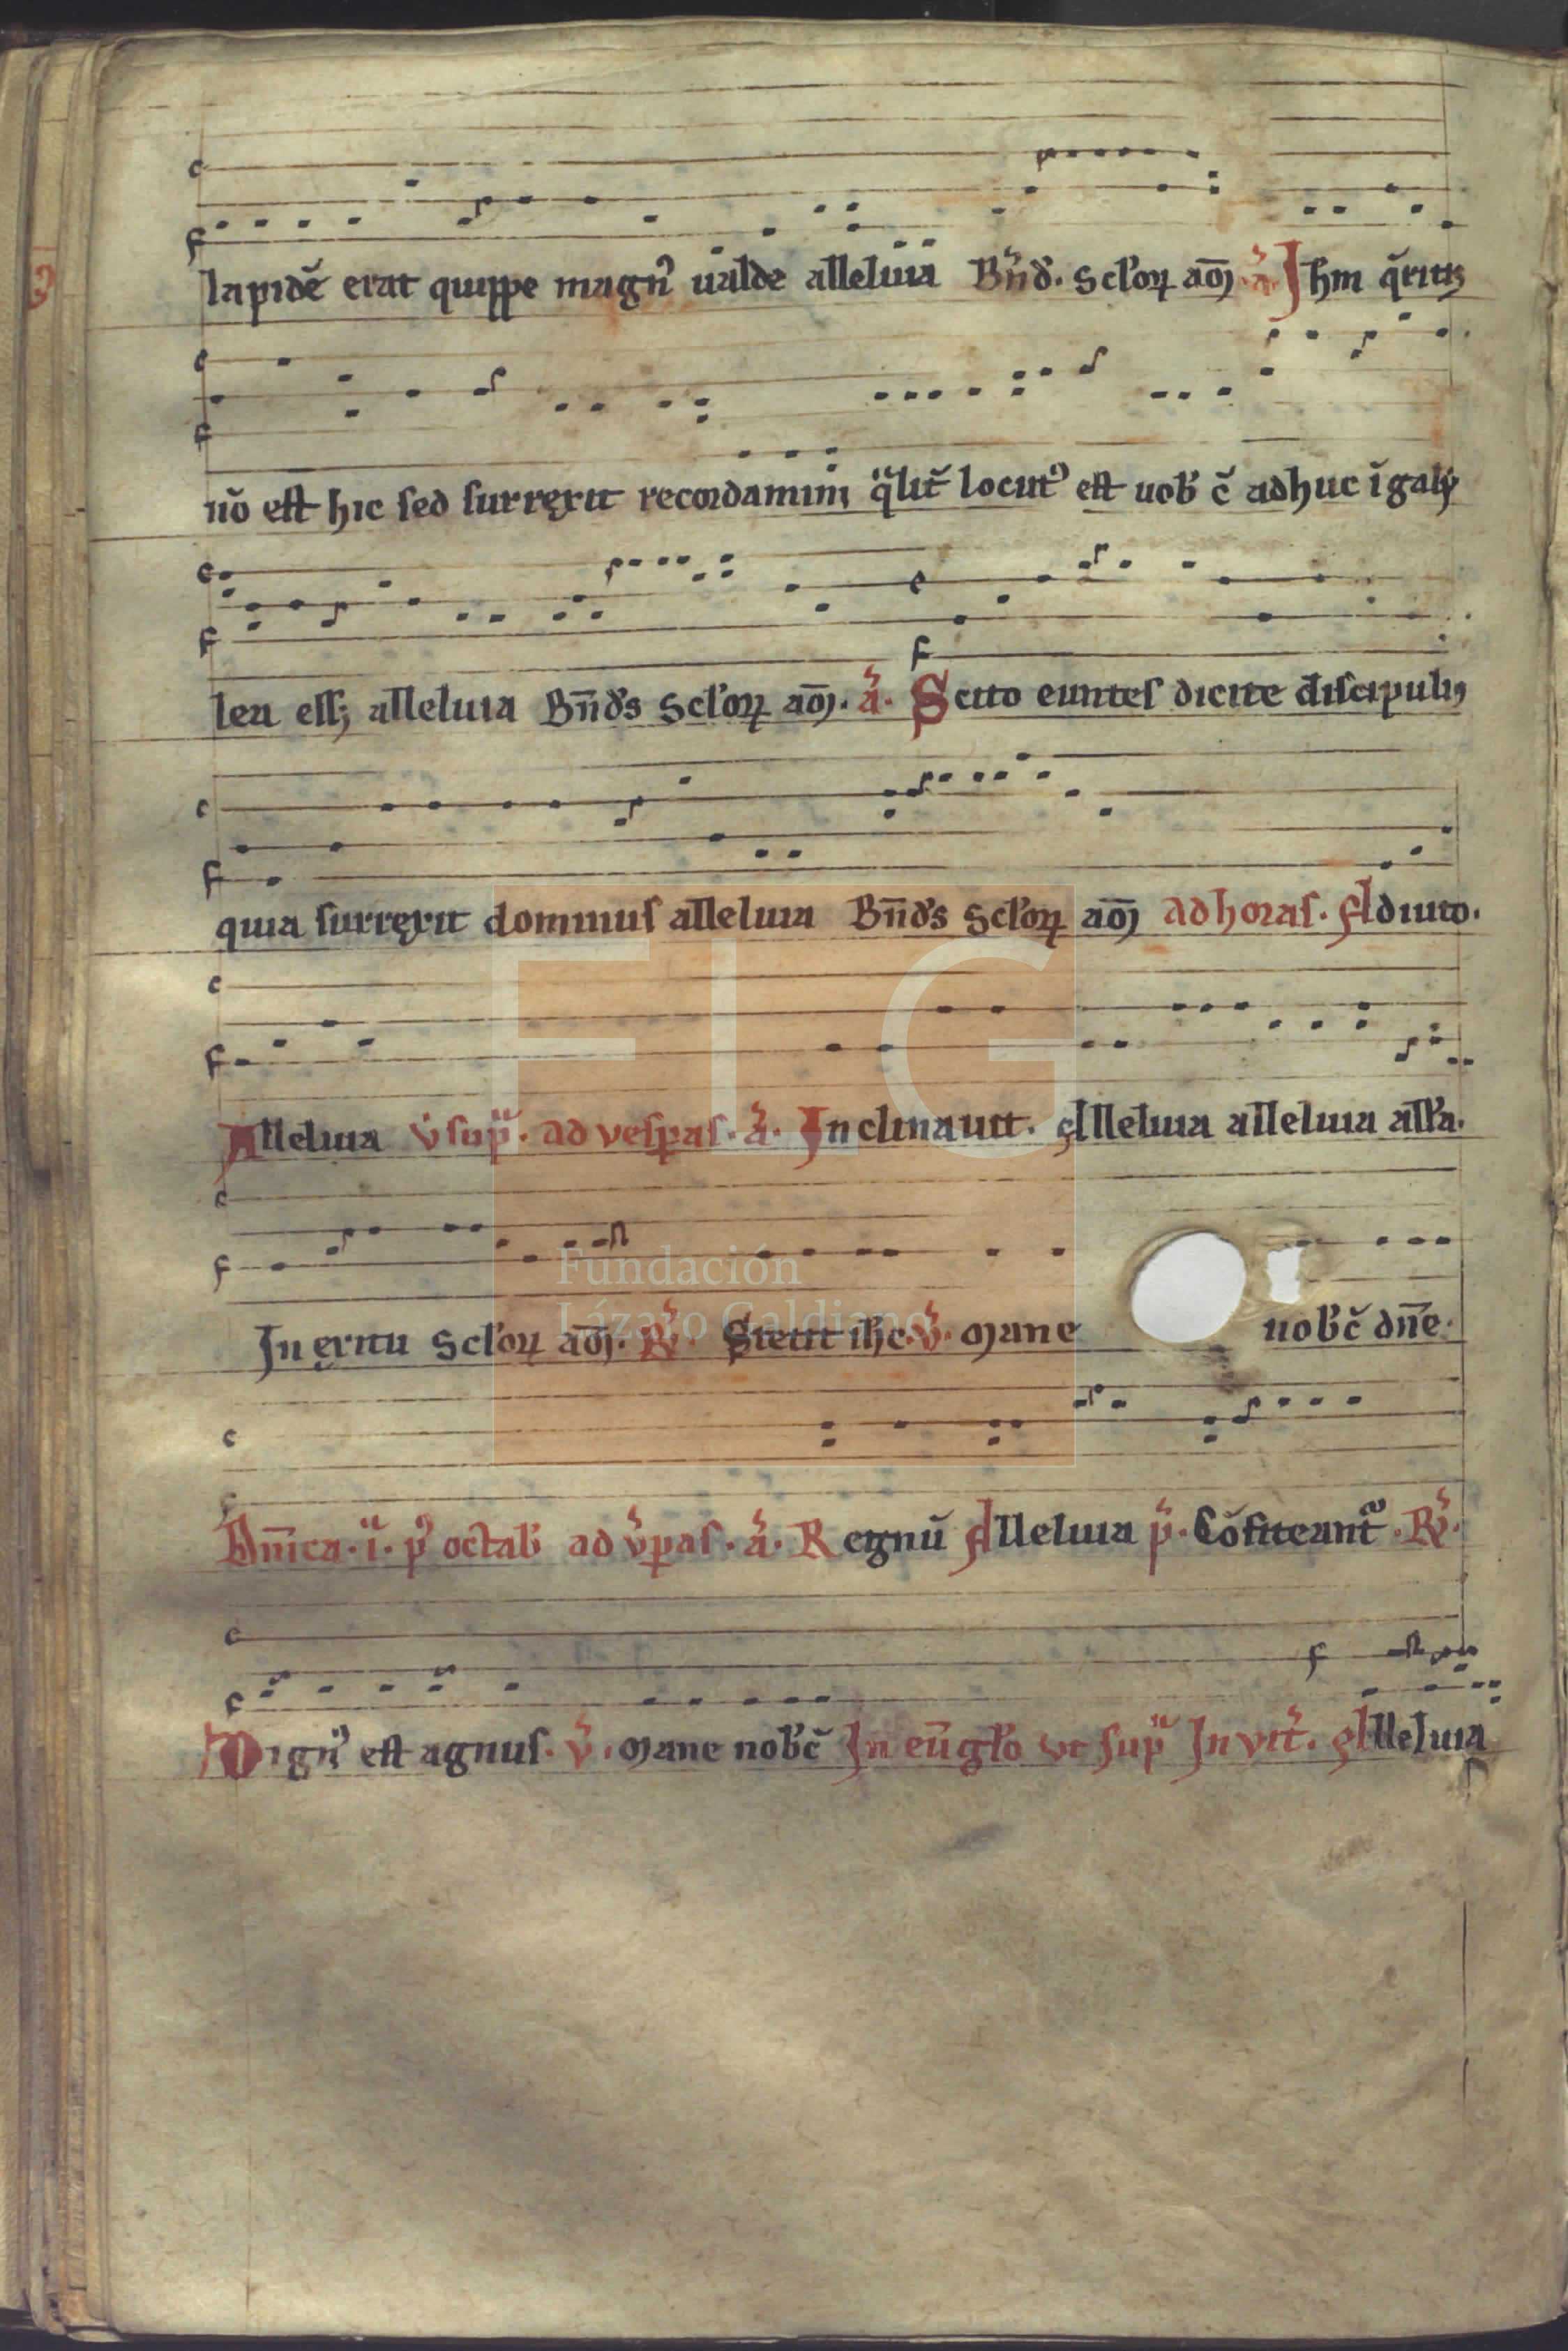 lapidē erat quippe magnꝰ ualde alleluia Bn̄d̓. sc̄loꝝ am̄. a̓. Ihm q̄ritis
nō est hic sed surrexit recordamini q̄lit̄ locutꝰ est uob̓ c̄ adhuc ī galy
lea eſſ; alleluia Bn̄d̓s sc̄loꝝ am̄. a̓. Scito euntes dicite discipulis
quia surrexit dominus alleluia Bn̄d̓s sc̄loꝝ am̄ ad horas. Adiuto.
Alleluia v̓ sup̄. ad vesp̄as. a̓. Inclinauit. Alleluia alleluia alla.
In exitu sc̄loꝝ am̄. R̓. Stetit ih̄c. v̓. Mane nob̓c̄ dn̄e.
Dn̄ica. i. p̓ octab̓ ad v̓p̄as. a̓. Regnū Alleluia p̓. Cōfiteant̄. R̓.
Dignꝰ est agnus. v̓. Mane nob̓c̄ In eu̅gl̓o ut sup̄ Invit̓. Alleluia
FLG
Fundación
Lázaro Galdiano